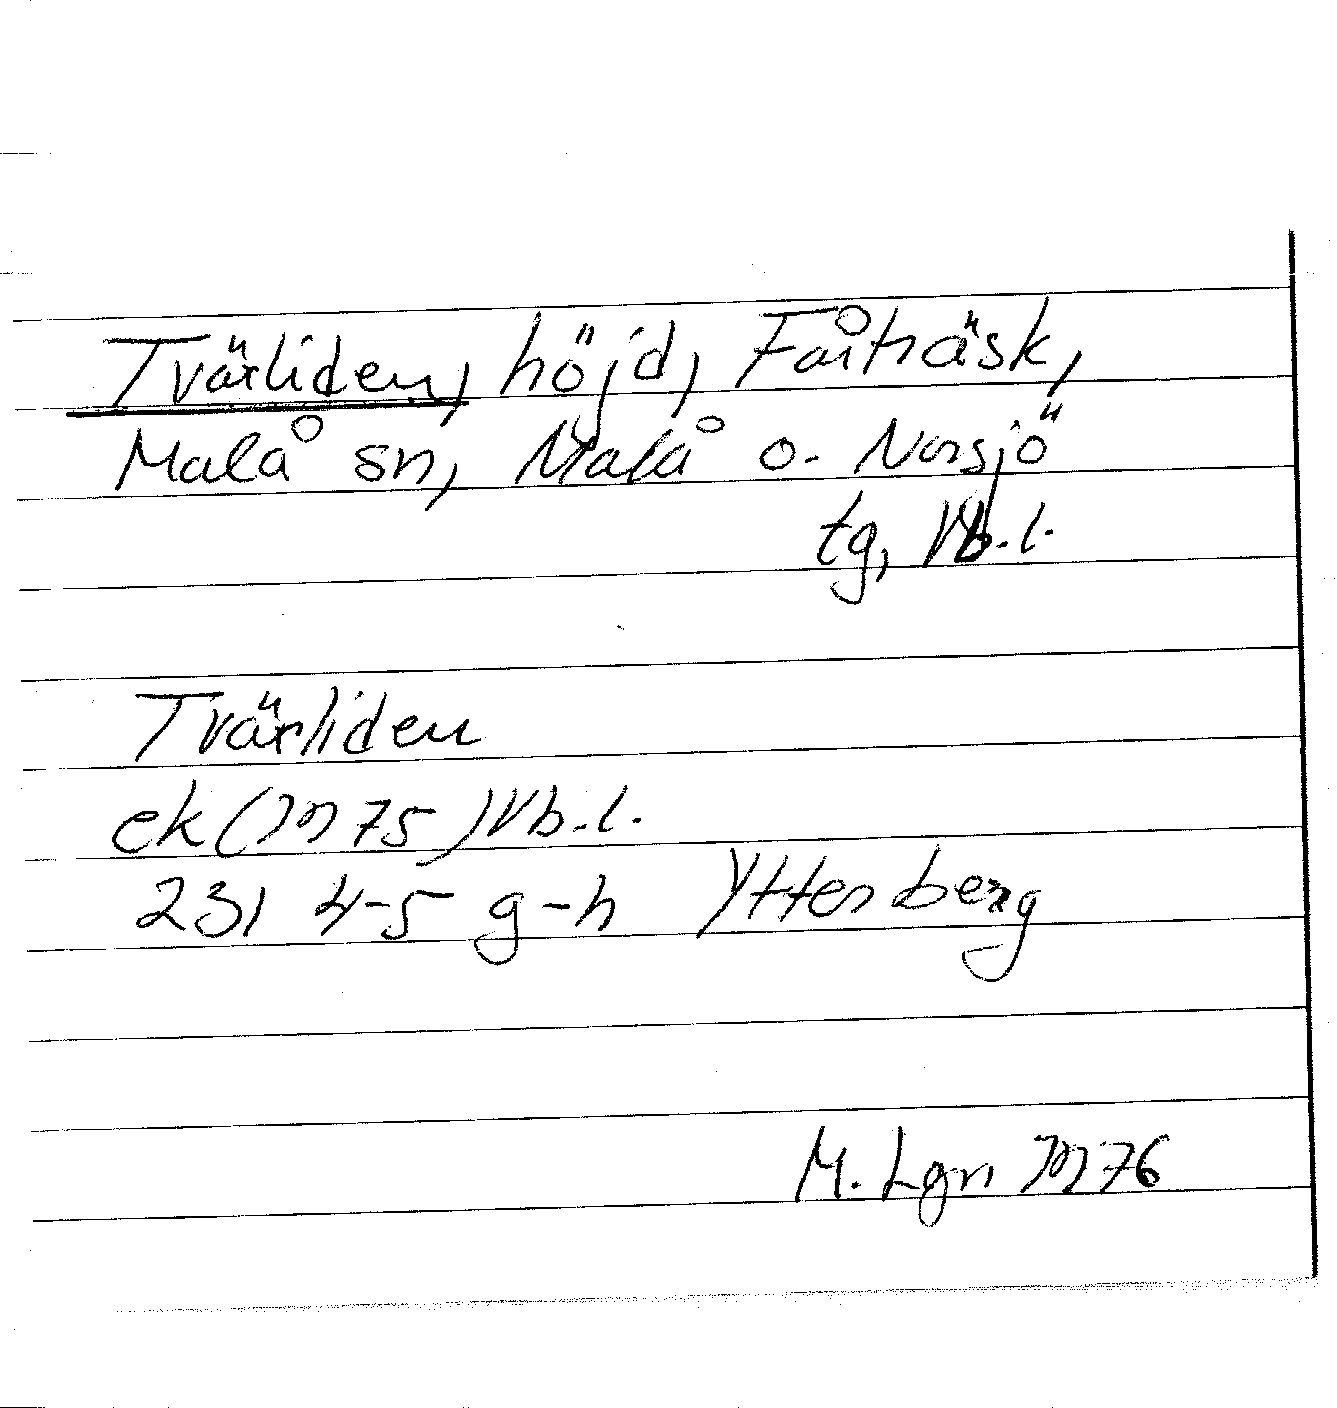 Tvärliden, höjd, Fårträsk,
Malå sn, Malå o. Norsjö
tg, Vb.l.
Tvärliden
ek (1975) Vb.l.
231 4-5 g-h Ytterberg
M. Lgn 1976